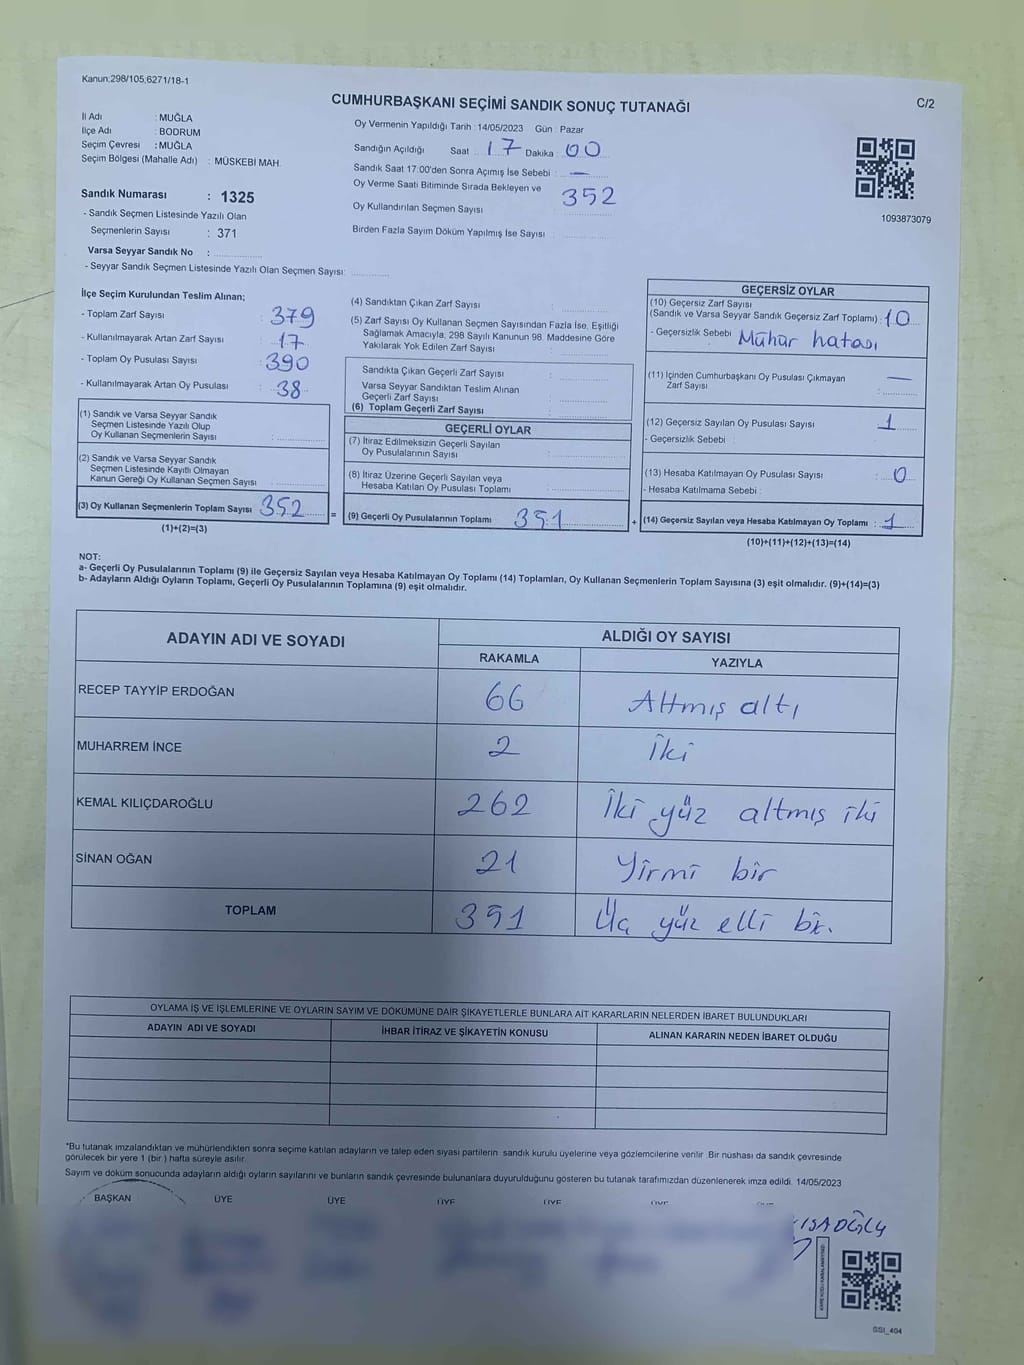 Kanun;298/105,6271/18-1
C/2
CUMHURBAŞKANI SEÇİMİ SANDIK SONUÇ TUTANAĞI
İl Adı : MUĞLA
İlçe Adı : BODRUM
Seçim Çevresi : MUĞLA
Seçim Bölgesi (Mahalle Adı) : MÜSKEBİ MAH.
Sandık Numarası : 1325
- Sandık Seçmen Listesinde Yazılı Olan
Seçmenlerin Sayısı : 371
Varsa Seyyar Sandık No :
- Seyyar Sandık Seçmen Listesinde Yazılı Olan Seçmen Sayısı:
Oy Vermenin Yapıldığı Tarih : 14/05/2023 Gün : Pazar
Sandığın Açıldığı Saat 17 Dakika 00
Sandık Saat 17:00'den Sonra Açımış İse Sebebi : —
Oy Verme Saati Bitiminde Sırada Bekleyen ve
Oy Kullandırılan Seçmen Sayısı 352
Birden Fazla Sayım Döküm Yapılmış İse Sayısı :
1093873079
İlçe Seçim Kurulundan Teslim Alınan;
- Toplam Zarf Sayısı : 379
- Kullanılmayarak Artan Zarf Sayısı : 17
- Toplam Oy Pusulası Sayısı : 390
- Kullanılmayarak Artan Oy Pusulası : 38
(1) Sandık ve Varsa Seyyar Sandık
Seçmen Listesinde Yazılı Olup
Oy Kullanan Seçmenlerin Sayısı :
(2) Sandık ve Varsa Seyyar Sandık
Seçmen Listesinde Kayıtlı Olmayan
Kanun Gereği Oy Kullanan Seçmen Sayısı :
(3) Oy Kullanan Seçmenlerin Toplam Sayısı 352
(1)+(2)=(3)
(4) Sandıktan Çıkan Zarf Sayısı :
(5) Zarf Sayısı Oy Kullanan Seçmen Sayısından Fazla İse, Eşitliği
Sağlamak Amacıyla, 298 Sayılı Kanunun 98. Maddesine Göre
Yakılarak Yok Edilen Zarf Sayısı :
Sandıkta Çıkan Geçerli Zarf Sayısı :
Varsa Seyyar Sandıktan Teslim Alınan
Geçerli Zarf Sayısı :
(6) Toplam Geçerli Zarf Sayısı :
GEÇERLİ OYLAR
(7) İtiraz Edilmeksizin Geçerli Sayılan
Oy Pusulalarının Sayısı :
(8) İtiraz Üzerine Geçerli Sayılan veya
Hesaba Katılan Oy Pusulası Toplamı :
= (9) Geçerli Oy Pusulalarının Toplamı 351
GEÇERSİZ OYLAR
(10) Geçersiz Zarf Sayısı
(Sandık ve Varsa Seyyar Sandık Geçersiz Zarf Toplamı) : 10
- Geçersizlik Sebebi : Mühür hatası
(11) İçinden Cumhurbaşkanı Oy Pusulası Çıkmayan
Zarf Sayısı : —
(12) Geçersiz Sayılan Oy Pusulası Sayısı : 1
- Geçersizlik Sebebi :
(13) Hesaba Katılmayan Oy Pusulası Sayısı : 0
- Hesaba Katılmama Sebebi :
+ (14) Geçersiz Sayılan veya Hesaba Katılmayan Oy Toplamı : 1
(10)+(11)+(12)+(13)=(14)
NOT:
a- Geçerli Oy Pusulalarının Toplamı (9) ile Geçersiz Sayılan veya Hesaba Katılmayan Oy Toplamı (14) Toplamları, Oy Kullanan Seçmenlerin Toplam Sayısına (3) eşit olmalıdır. (9)+(14)=(3)
b- Adayların Aldığı Oyların Toplamı, Geçerli Oy Pusulalarının Toplamına (9) eşit olmalıdır.
ADAYIN ADI VE SOYADI ALDIĞI OY SAYISI
RAKAMLA YAZIYLA
RECEP TAYYİP ERDOĞAN 66 Altmış altı
MUHARREM İNCE 2 İki
KEMAL KILIÇDAROĞLU 262 İki yüz altmış iki
SİNAN OĞAN 21 Yirmi bir
TOPLAM 351 Üç yüz elli bir.
OYLAMA İŞ VE İŞLEMLERİNE VE OYLARIN SAYIM VE DÖKÜMÜNE DAİR ŞİKAYETLERLE BUNLARA AİT KARARLARIN NELERDEN İBARET BULUNDUKLARI
ADAYIN ADI VE SOYADI İHBAR İTİRAZ VE ŞİKAYETİN KONUSU ALINAN KARARIN NEDEN İBARET OLDUĞU
*Bu tutanak imzalandıktan ve mühürlendikten sonra seçime katılan adayların ve talep eden siyasi partilerin sandık kurulu üyelerine veya gözlemcilerine verilir. Bir nüshası da sandık çevresinde
görülecek bir yere 1 (bir) hafta süreyle asılır.
Sayım ve döküm sonucunda adayların aldığı oyların sayılarını ve bunların sandık çevresinde bulunanlara duyurulduğunu gösteren bu tutanak tarafımızdan düzenlenerek imza edildi. 14/05/2023
BAŞKAN ÜYE ÜYE ÜYE ÜYE ÜYE